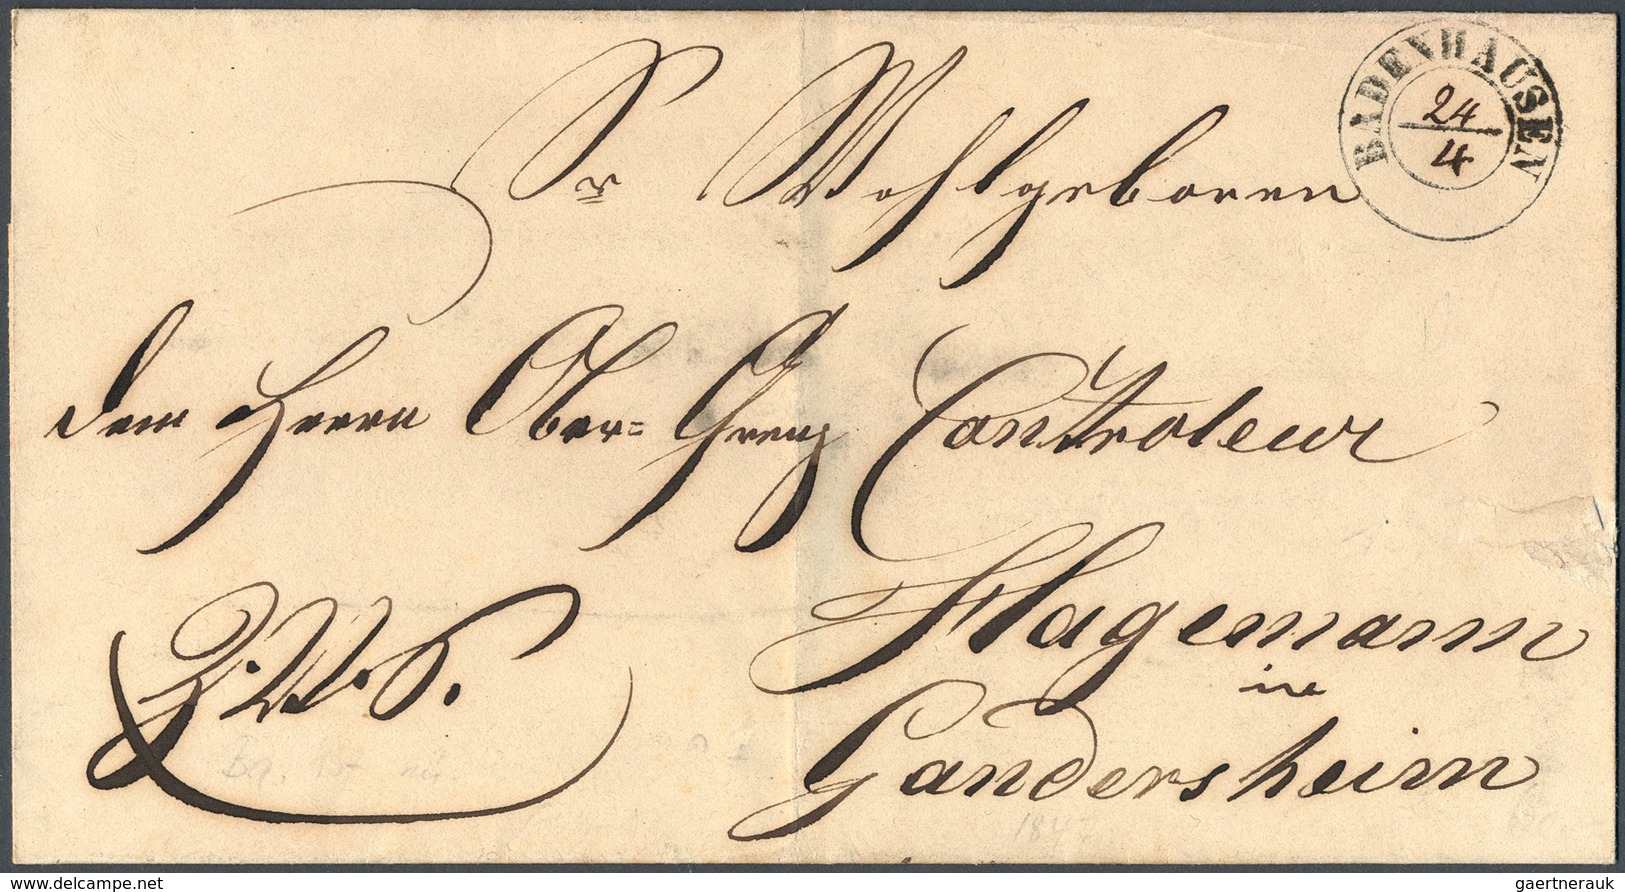 BADENHAUSEN
24
4
Sr Wohlgeboren
dem Herrn Ober= Grenz Controleur
Hagemann
in
Gandersheim
Z. W. S.
1847
© www.delcampe.net
gaertnerauk